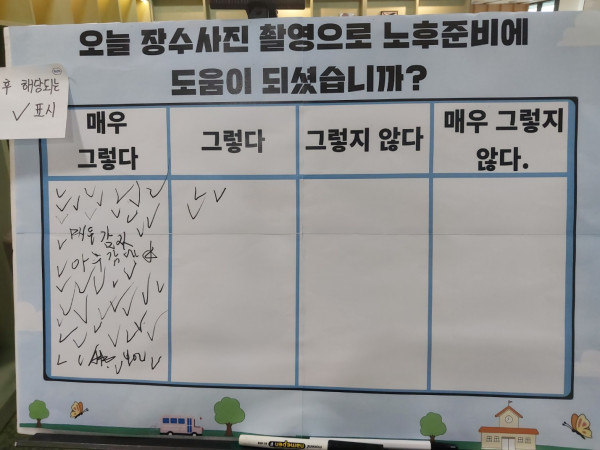 오늘 장수사진 촬영으로 노후준비에
도움이 되셨습니까?
후 해당되는
✓ 표시
매우
그렇다
그렇다
그렇지 않다
매우 그렇지
않다.
매우 감사
아주 감
namepen